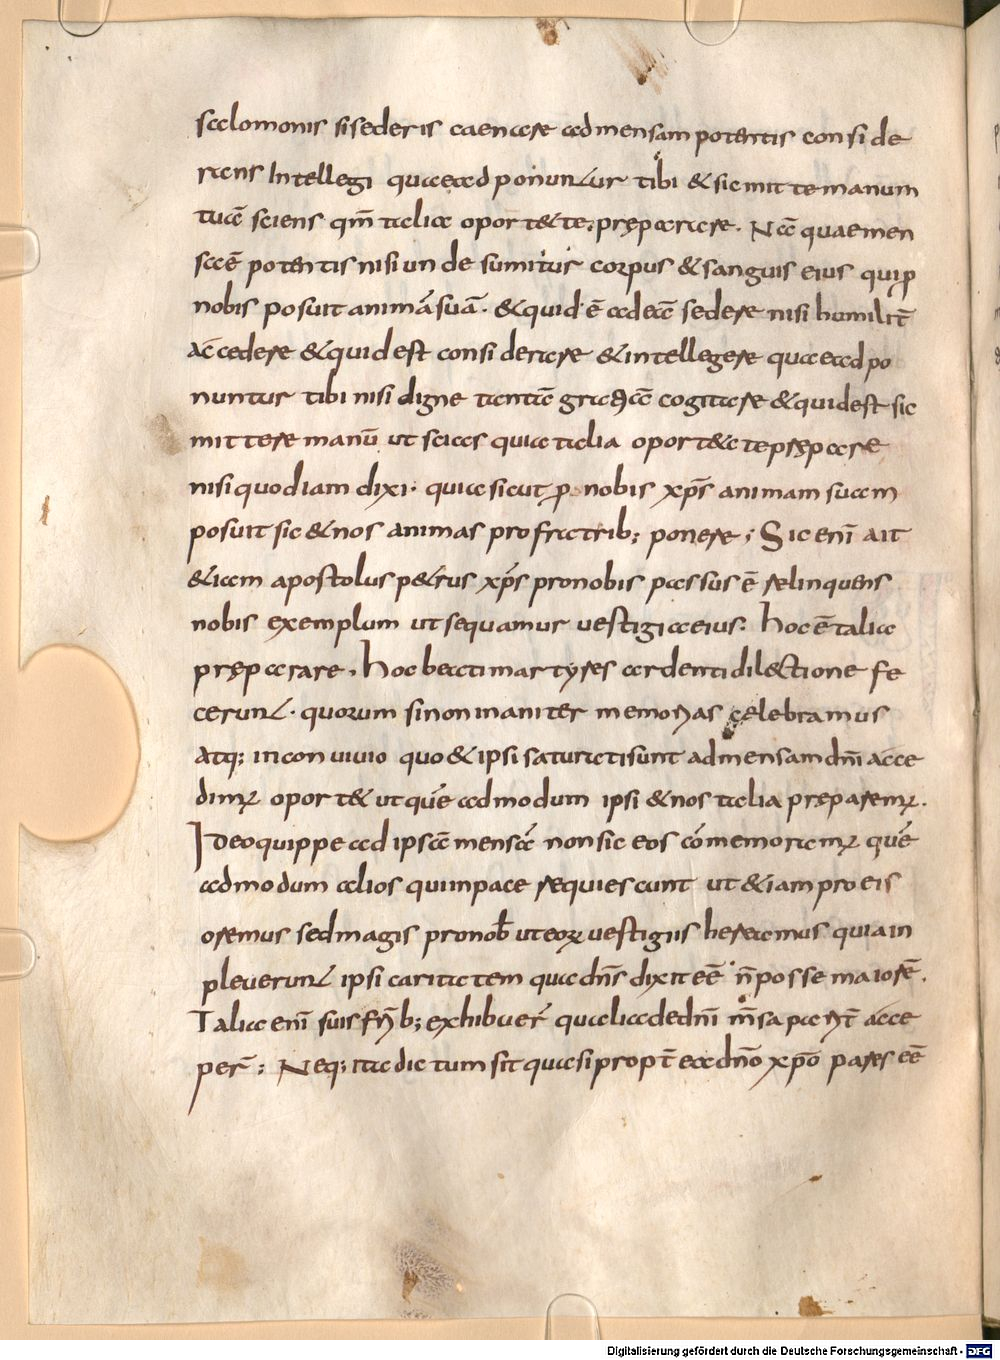 salomonis si sederis caenare ad mensam potentis conside
rans Intellegi quae ad ponuntur tibi & sic mitte manum
tuā sciens qm̄ talia oport& te, pręparare. Nā quae men
sā ē potentis nisi unde sumitur corpus & sanguis eius qui ꝓ
nobis posuit animā suā. & quid ē ad eā sedere nisi humilit̄
accedere & quid est considerare & intellegere quae ad po
nuntur tibi nisi digne tantā gratiā cogitare & quid est sic
mittere manū ut scias quia talia oport& te pręparare
nisi quod iam dixi. quia sicut ꝓ nobis xp̄s animam suam
posuit sic & nos animas pro fratrib; ponere; Sic enī ait
& iam apostolus p&rus xp̄s pro nobis passus ē relinquens
nobis exemplum ut sequamur uestigia eius. hoc ē talia
pręparare. hoc beati martyres ardenti dilectione fe
cerunt. quorum si non inaniter memorias celebramus
Atq; in conuiuio quo & ipsi saturati sunt ad mensam dn̄i acce
dimꝰ oport& ut quē admodum ipsi & nos talia pręparemꝰ.
Ideo quippe ad ipsā mensā non sic eos cōmemoramꝰ quē
admodum alios qui in pace requiescunt ut & iam pro eis
oremus sed magis pro nob̄ ut eoꝝ uestigiis hereamus quia in
pleuerunt ipsi caritatem qua dn̄s dixit eē n̄ posse maiorē.
Talia enī suis fr̄ib; exhibuer̄ qualia de dn̄i m̄sa parit̄ acce
per̄; Neq; ita dictum sit quasi propt̄ ea dn̄o xp̄o pares eē
Digitalisierung gefördert durch die Deutsche Forschungsgemeinschaft - DFG